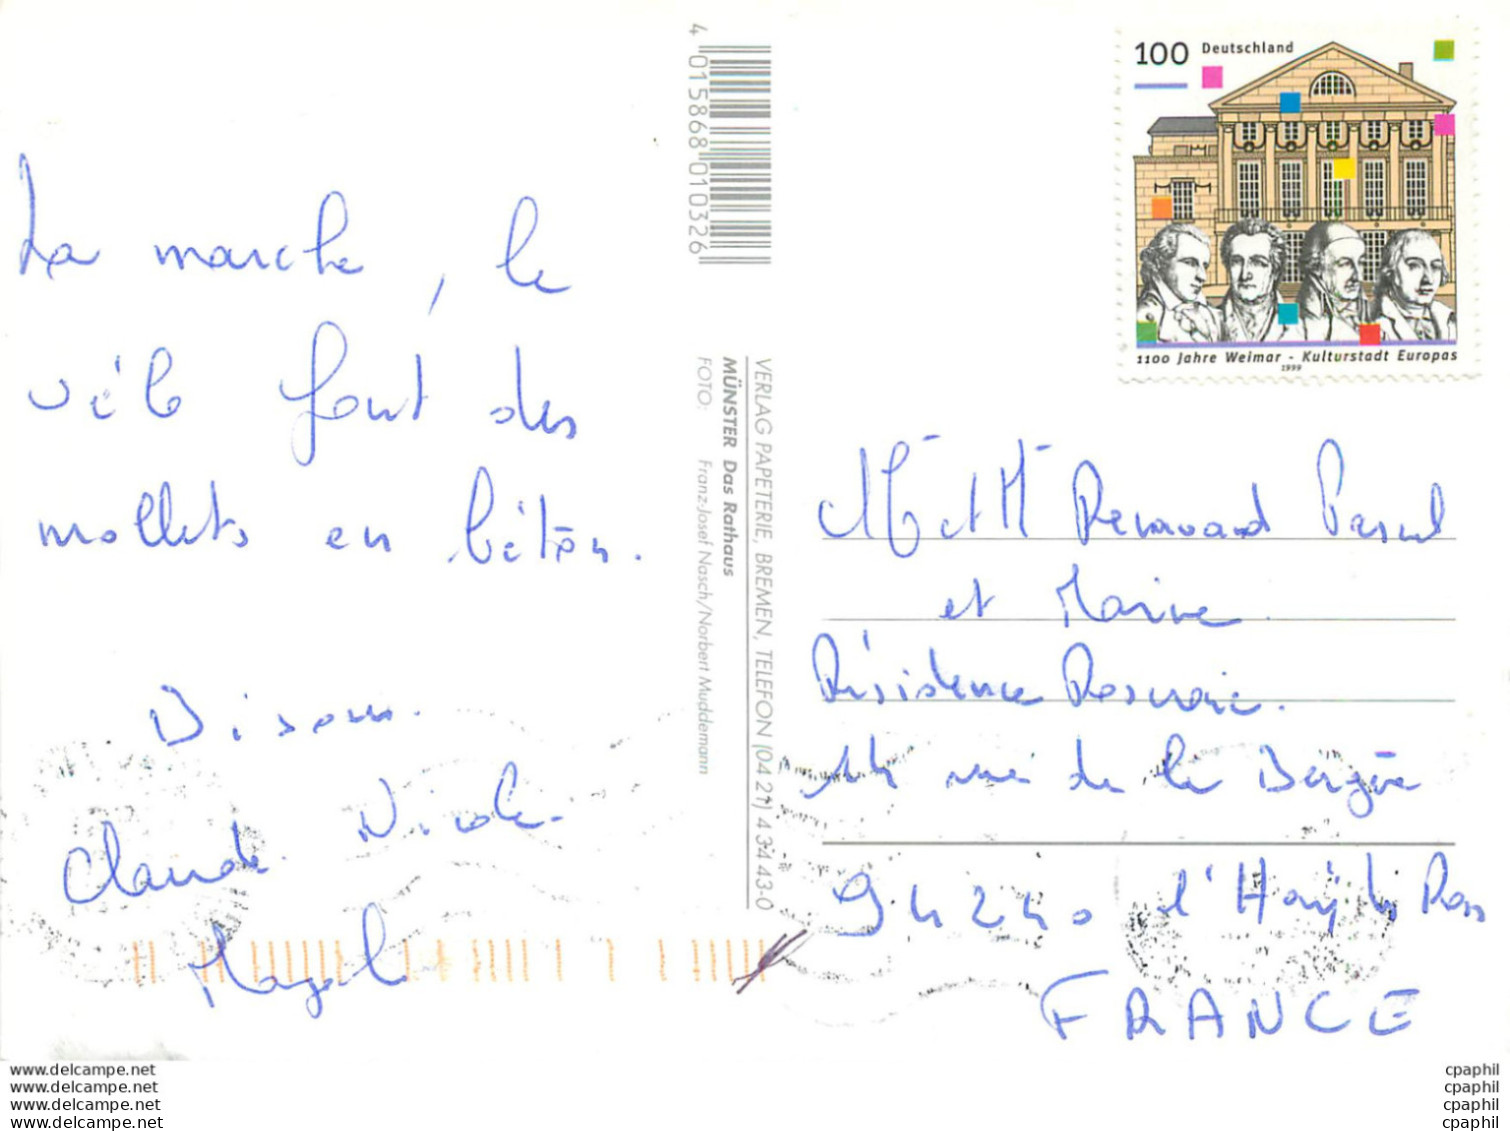 La marche, le
vélo font des
mollets en béton.
Bisous.
Claude. Nicole.
Magali
4 015868 010326
VERLAG PAPETERIE, BREMEN, TELEFON (04 21) 4 34 43-0
MÜNSTER Das Rathaus
FOTO: Franz-Josef Nasch/Norbert Muddemann
100 Deutschland
1100 Jahre Weimar - Kulturstadt Europas
1999
M et Mme Renouard Pascal
et Marine
Résidence
44 rue de la Bergère
94240 l'Haÿ les Roses
FRANCE
www.delcampe.net
www.delcampe.net
www.delcampe.net
www.delcampe.net
cpaphil
cpaphil
cpaphil
cpaphil